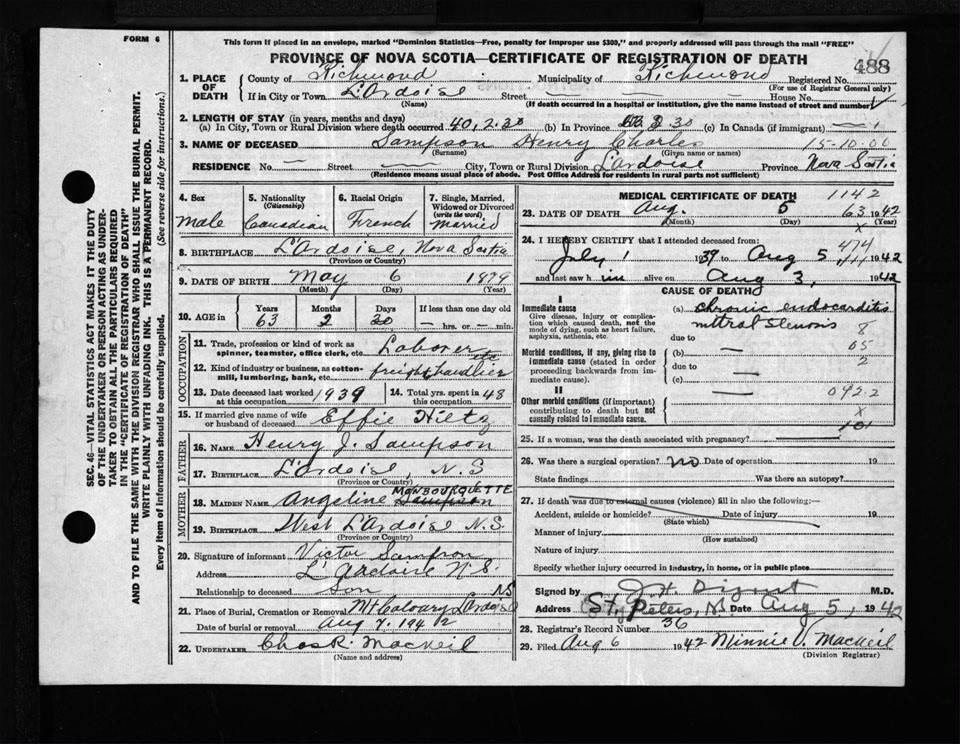 FORM 6
This form if placed in an envelope, marked "Dominion Statistics—Free, penalty for improper use $300," and properly addressed will pass through the mail "FREE"
PROVINCE OF NOVA SCOTIA—CERTIFICATE OF REGISTRATION OF DEATH
488
1. PLACE OF DEATH County of Richmond Municipality of Richmond Registered No.
(For use of Registrar General only)
If in City or Town L'Ardoise Street — House No.
(Name) (If death occurred in a hospital or institution, give the name instead of street and number)
2. LENGTH OF STAY (in years, months and days)
(a) In City, Town or Rural Division where death occurred 40, 2. 30 (b) In Province 63 2 30 (c) In Canada (if immigrant) —
3. NAME OF DECEASED Sampson Henry Charles 15-10-00
(Surname) (Given name or names)
RESIDENCE No. — Street — City, Town or Rural Division L'ardoise Province Nova Scotia
(Residence means usual place of abode. Post Office Address for residents in rural parts not sufficient)
SEC. 46—VITAL STATISTICS ACT MAKES IT THE DUTY
OF THE UNDERTAKER OR PERSON ACTING AS UNDER-
TAKER TO OBTAIN ALL THE PARTICULARS REQUIRED
IN THE "CERTIFICATE OF REGISTRATION OF DEATH"
AND TO FILE THE SAME WITH THE DIVISION REGISTRAR WHO SHALL ISSUE THE BURIAL PERMIT.
WRITE PLAINLY WITH UNFADING INK. THIS IS A PERMANENT RECORD.
Every item of information should be carefully supplied. (See reverse side for instructions.)
4. Sex 5. Nationality (Citizenship) 6. Racial Origin 7. Single, Married, Widowed or Divorced (write the word)
Male Canadian French Married
8. BIRTHPLACE L'Ardoise, Nova Scotia
(Province or Country)
9. DATE OF BIRTH May 6 1879
(Month) (Day) (Year)
10. AGE in Years Months Days If less than one day old
63 2 30 — hrs. or — min.
OCCUPATION
11. Trade, profession or kind of work as spinner, teamster, office clerk, etc. Laborer
12. Kind of industry or business, as cotton-mill, lumbering, bank, etc. freight handlier etc
13. Date deceased last worked at this occupation 1939 14. Total yrs. spent in this occupation 48
15. If married give name of wife or husband of deceased Effie Hiltz
FATHER
16. NAME Henry J. Sampson
17. BIRTHPLACE L'Ardoise, N.S
(Province or Country)
MOTHER
18. MAIDEN NAME Angeline Sampson MONBOURQUETTE
19. BIRTHPLACE West L'Ardoise N.S.
(Province or Country)
20. Signature of informant Victor Sampson
Address L'Ardoise N.S.
Relationship to deceased Son
21. Place of Burial, Cremation or Removal Mt Calvary L'Ardoise NS
Date of burial or removal Aug 7. 1942
22. UNDERTAKER Chas R. MacNeil
(Name and address)
MEDICAL CERTIFICATE OF DEATH 1142
23. DATE OF DEATH Aug. 5 63 1942
(Month) (Day) X (Year)
24. I HEREBY CERTIFY that I attended deceased from: 474
July 1 1939 to Aug 5, 1942
and last saw him alive on Aug 3, 1942
CAUSE OF DEATH
I
Immediate cause (a) chronic endocarditis
Give disease, injury or complication which caused death, not the mode of dying, such as heart failure, asphyxia, asthenia, etc.
mitral stenosis 8
due to 05
Morbid conditions, if any, giving rise to immediate cause (stated in order proceeding backwards from immediate cause).
(b) — 2
due to
(c) —
II
Other morbid conditions (if important) contributing to death but not causally related to immediate cause.
092.2
X
101
25. If a woman, was the death associated with pregnancy? —
26. Was there a surgical operation? No Date of operation 19
State findings Was there an autopsy?
27. If death was due to external causes (violence) fill in also the following:—
Accident, suicide or homicide? Date of injury 19
(State which)
Manner of injury
(How sustained)
Nature of injury
Specify whether injury occurred in industry, in home, or in public place
Signed by J. H. M.D.
Address St. Peters, NS Date Aug 5, 1942
28. Registrar's Record Number 36
29. Filed Aug 6 1942 Minnie V. MacNeil
(Division Registrar)